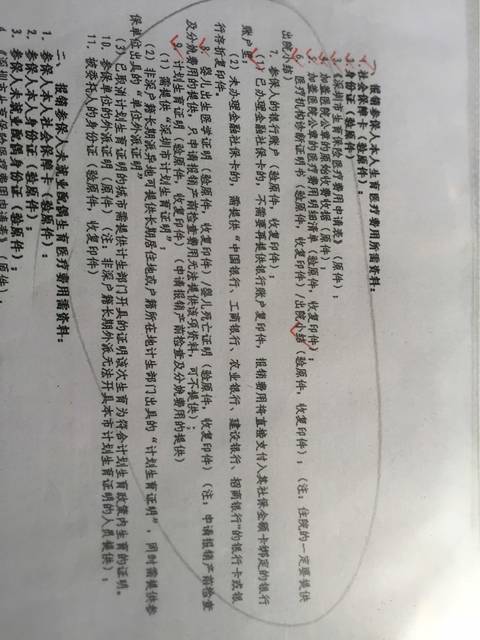 一、报销参保人本人生育医疗费用所需资料：
1、社会保障卡（验原件）；
3、《深圳市生育保险医疗费用申请表》（原件）；
4、加盖医院公章的原始收费收据（原件）；
5、加盖医院公章的医疗费用明细清单（验原件，收复印件）；
6、医疗机构诊断证明书（验原件，收复印件）/出院小结（验原件，收复印件）；（注：住院的一定要提供
出院小结）
7、参保人的银行账户（验原件，收复印件）；
（1）已办理金融社保卡的，不需要再提供银行账户复印件，报销费用将直接支付入其社保金融卡绑定的银行
账户里
（2）未办理金融社保卡的，需提供“中国银行、工商银行、农业银行、建设银行、招商银行”的银行卡或银
行存折复印件。
8、婴儿出生医学证明（验原件，收复印件）/婴儿死亡证明（验原件，收复印件）（注：申请报销产前检查
及分娩费用的提供，只申请报销产前检查费用无法提供该项资料，可不提供）；
9、计划生育证明（验原件，收复印件）（申请报销产前检查及分娩费用的提供）
（1）需提供“深圳市计划生育证明”；
（2）非深户籍长期派异地可提供长期居住地或户籍所在地计生部门出具的“计划生育证明”，同时需提供参
保单位出具的“单位外派证明”
（3）已取消计划生育证明的城市需提供计生部门开具的证明该次生育为符合计划生育政策内生育的证明。
10、参保单位的外派证明（原件）（注：非深户籍长期外派无法开具本市计划生育证明的人员提供）；
11、被委托人的身份证（验原件，收复印件）
二、报销参保人未就业配偶生育医疗费用需资料：
1、参保人本人社会保障卡（验原件）；
2、参保人本人身份证（验原件）；
3、参保人未就业配偶身份证（验原件）；
4、《深圳市生育保险医疗费用申请表》（原件）；